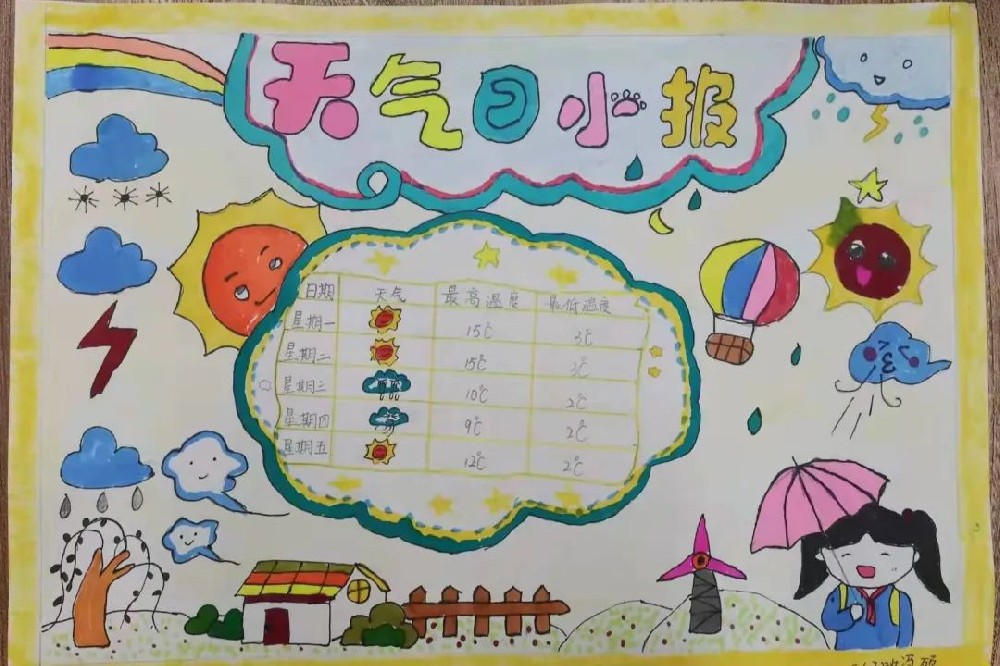 天气日小报
日期 天气 最高温度 最低温度
星期一 15℃ 3℃
星期二 15℃ 3℃
星期三 10℃ 2℃
星期四 9℃ 2℃
星期五 12℃ 2℃